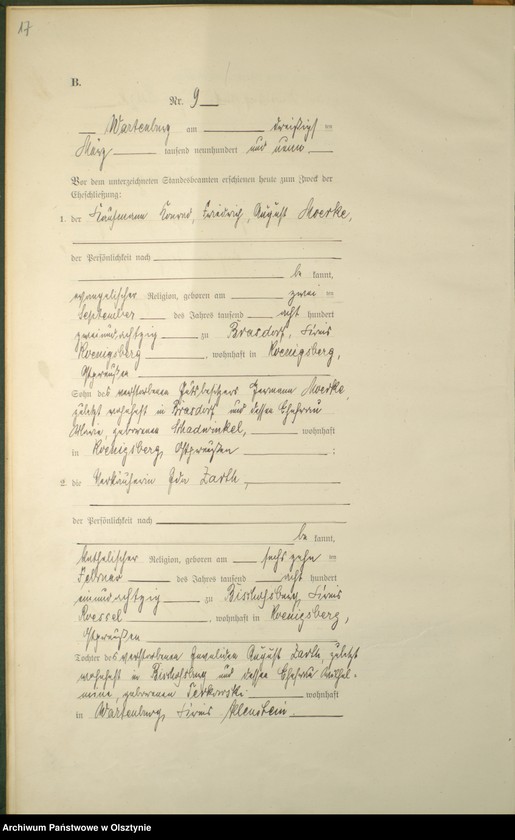 17
B.
Nr. 9
Wartenburg am dreißigs ten
März tausend neunhundert und neun
Vor dem unterzeichneten Standesbeamten erschienen heute zum Zweck der
Eheschließung:
1. der Kaufmann Konrad, Friedrich, August Moerke,
der Persönlichkeit nach
be kannt,
evangelischer Religion, geboren am zwei ten
September des Jahres tausend acht hundert
zweiundachtzig zu Brasdorf, Kreis
Koenigsberg, wohnhaft in Koenigsberg,
Ostpreußen
Sohn des verstorbenen Gutsbesitzers Hermann Moerke,
zuletzt wohnhaft in Brasdorf und dessen Ehefrau
geborenen Schadwinkel, wohnhaft
in Koenigsberg, Ostpreußen;
2. die Verkäuferin Ida Zarth,
der Persönlichkeit nach
be kannt,
katholischer Religion, geboren am sechszehn ten
Februar des Jahres tausend acht hundert
einundachtzig zu Bischofsburg, Kreis
Roessel, wohnhaft in Koenigsberg,
Ostpreußen
Tochter des verstorbenen Invaliden August Zarth, zuletzt
wohnhaft in Bischofsburg und dessen Ehefrau Wilhel-
mine, geborenen Terkowski wohnhaft
in Wartenburg, Kreis Allenstein.
Archiwum Państwowe w Olsztynie